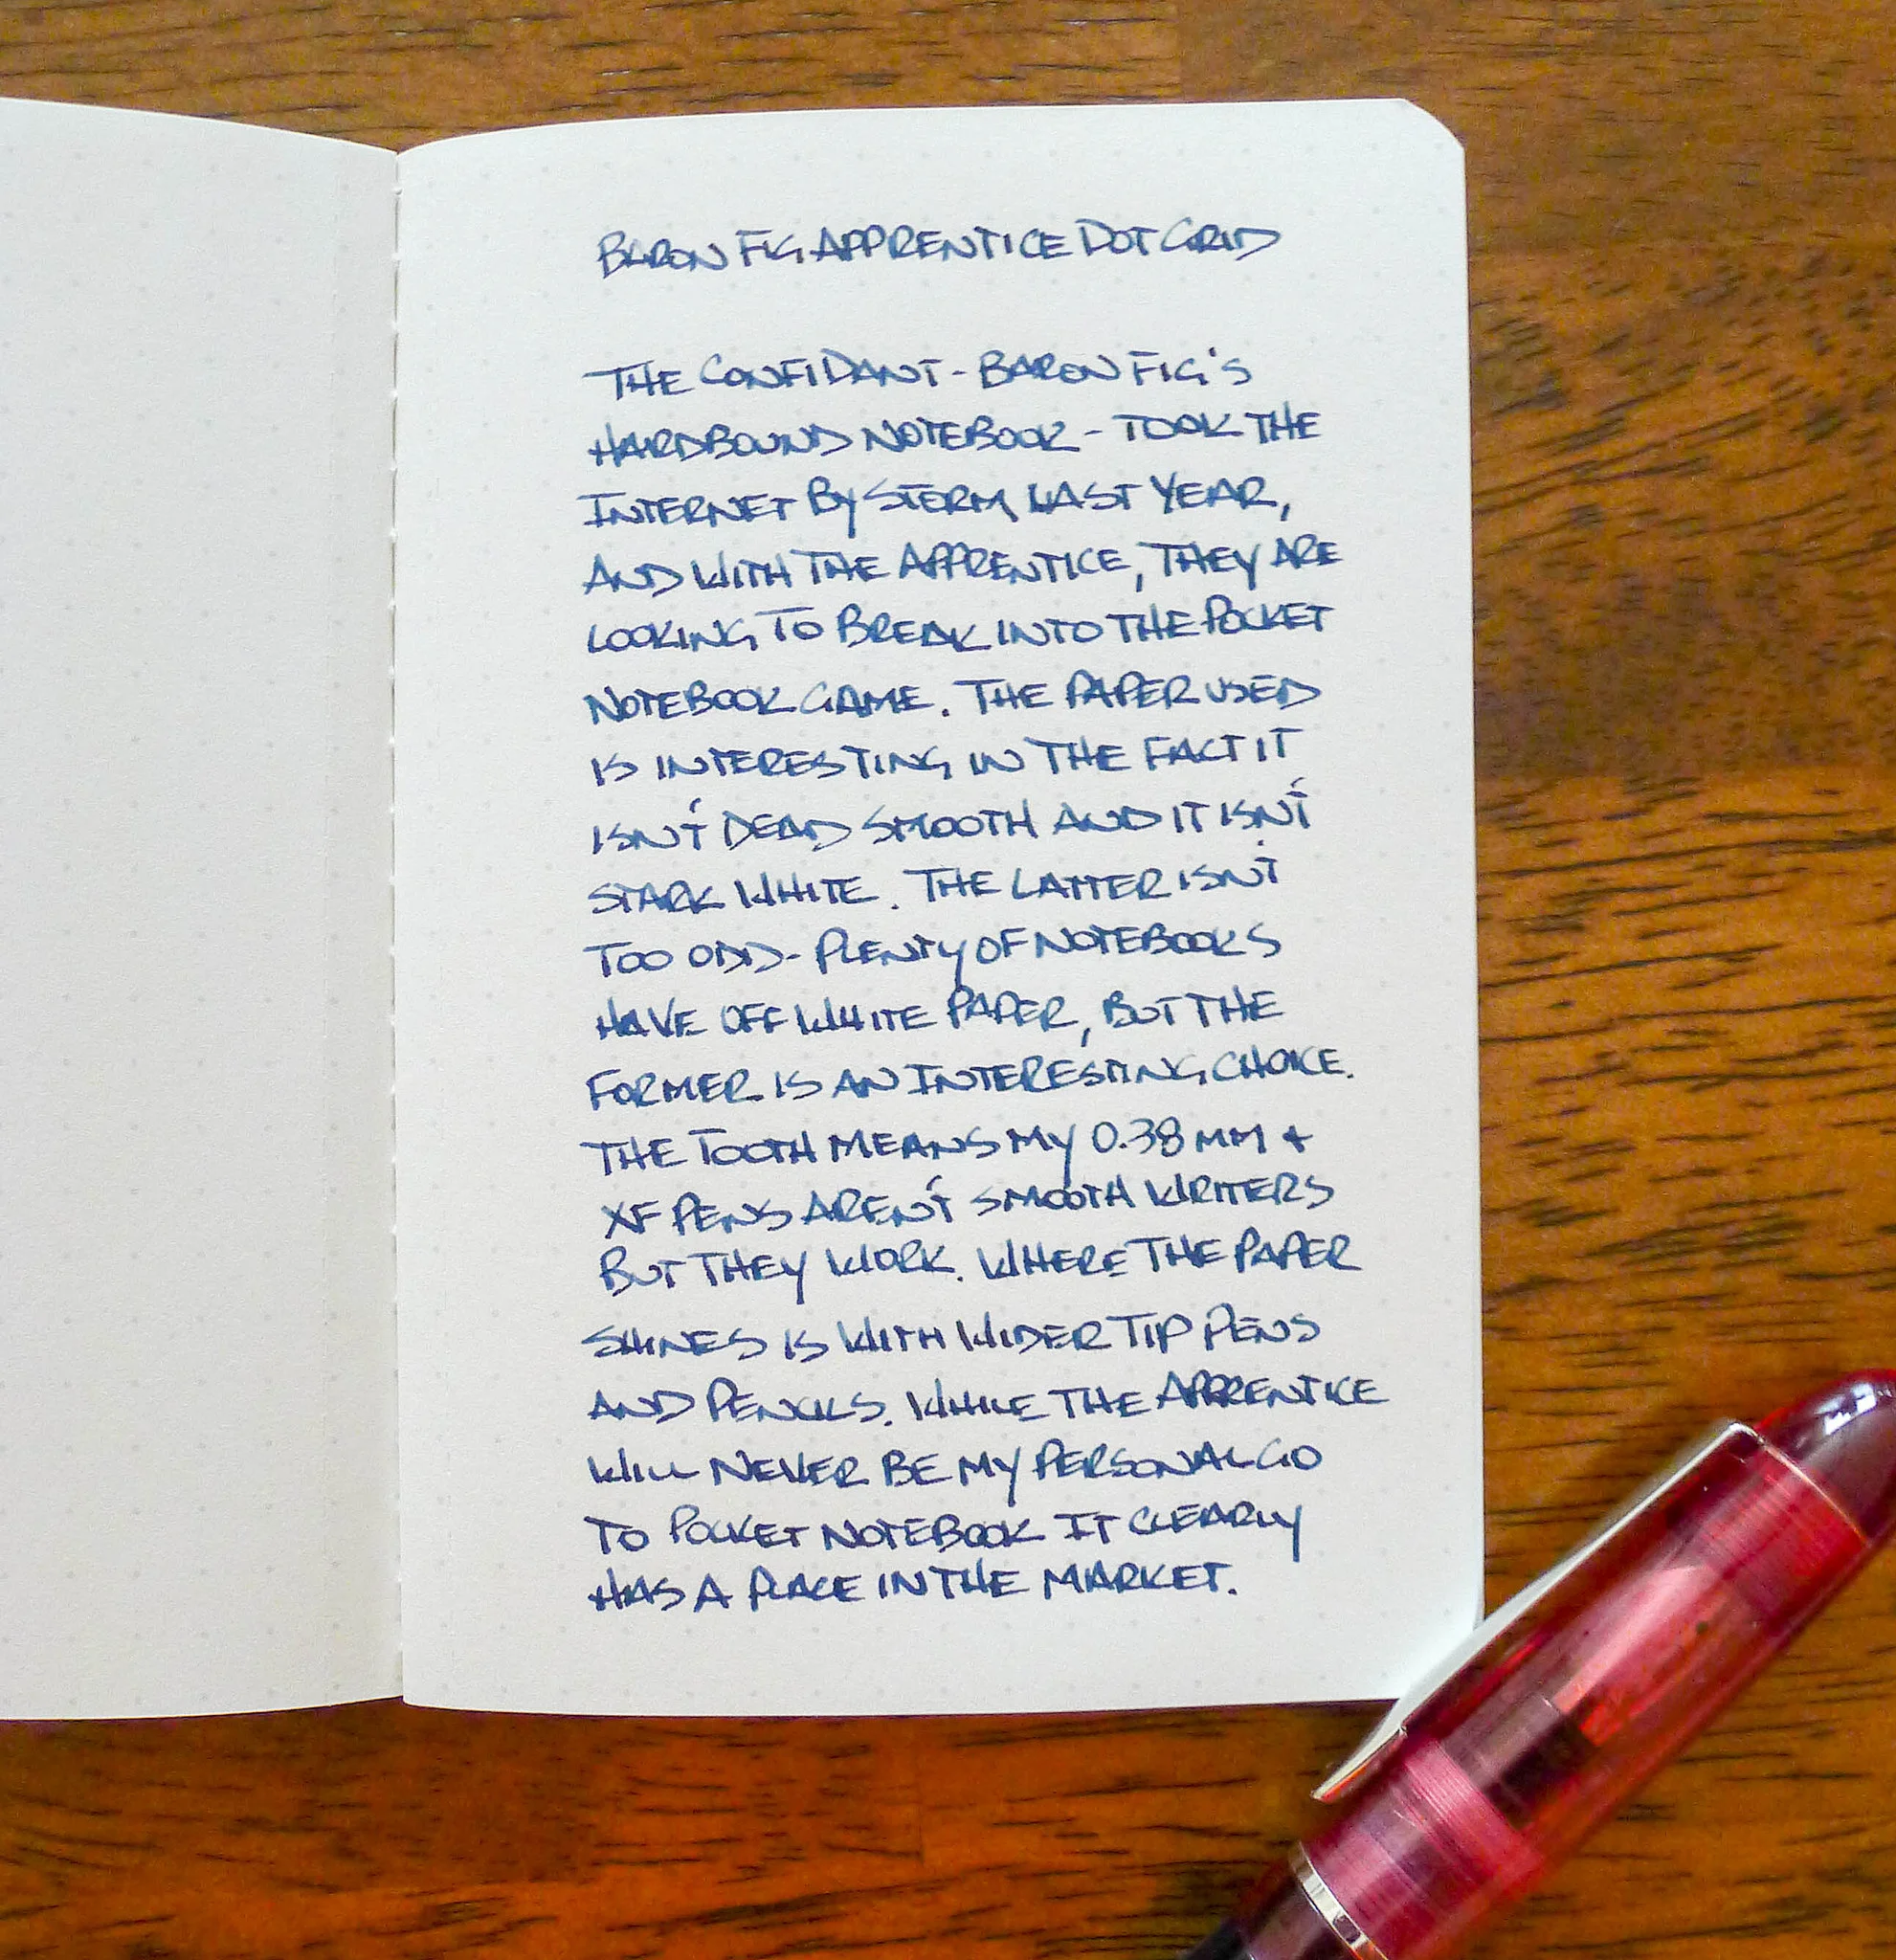 BARON FIG APPRENTICE DOT GRID
THE CONFIDANT - BARON FIG'S
HARDBOUND NOTEBOOK - TOOK THE
INTERNET BY STORM LAST YEAR,
AND WITH THE APPRENTICE, THEY ARE
LOOKING TO BREAK INTO THE POCKET
NOTEBOOK GAME. THE PAPER USED
IS INTERESTING IN THE FACT IT
ISN'T DEAD SMOOTH AND IT ISN'T
STARK WHITE. THE LATTER ISN'T
TOO ODD - PLENTY OF NOTEBOOKS
HAVE OFF WHITE PAPER, BUT THE
FORMER IS AN INTERESTING CHOICE.
THE TOOTH MEANS MY 0.38 MM +
XF PENS AREN'T SMOOTH WRITERS
BUT THEY WORK. WHERE THE PAPER
SHINES IS WITH WIDER TIP PENS
AND PENCILS. WHILE THE APPRENTICE
WILL NEVER BE MY PERSONAL GO
TO POCKET NOTEBOOK IT CLEARLY
HAS A PLACE IN THE MARKET.